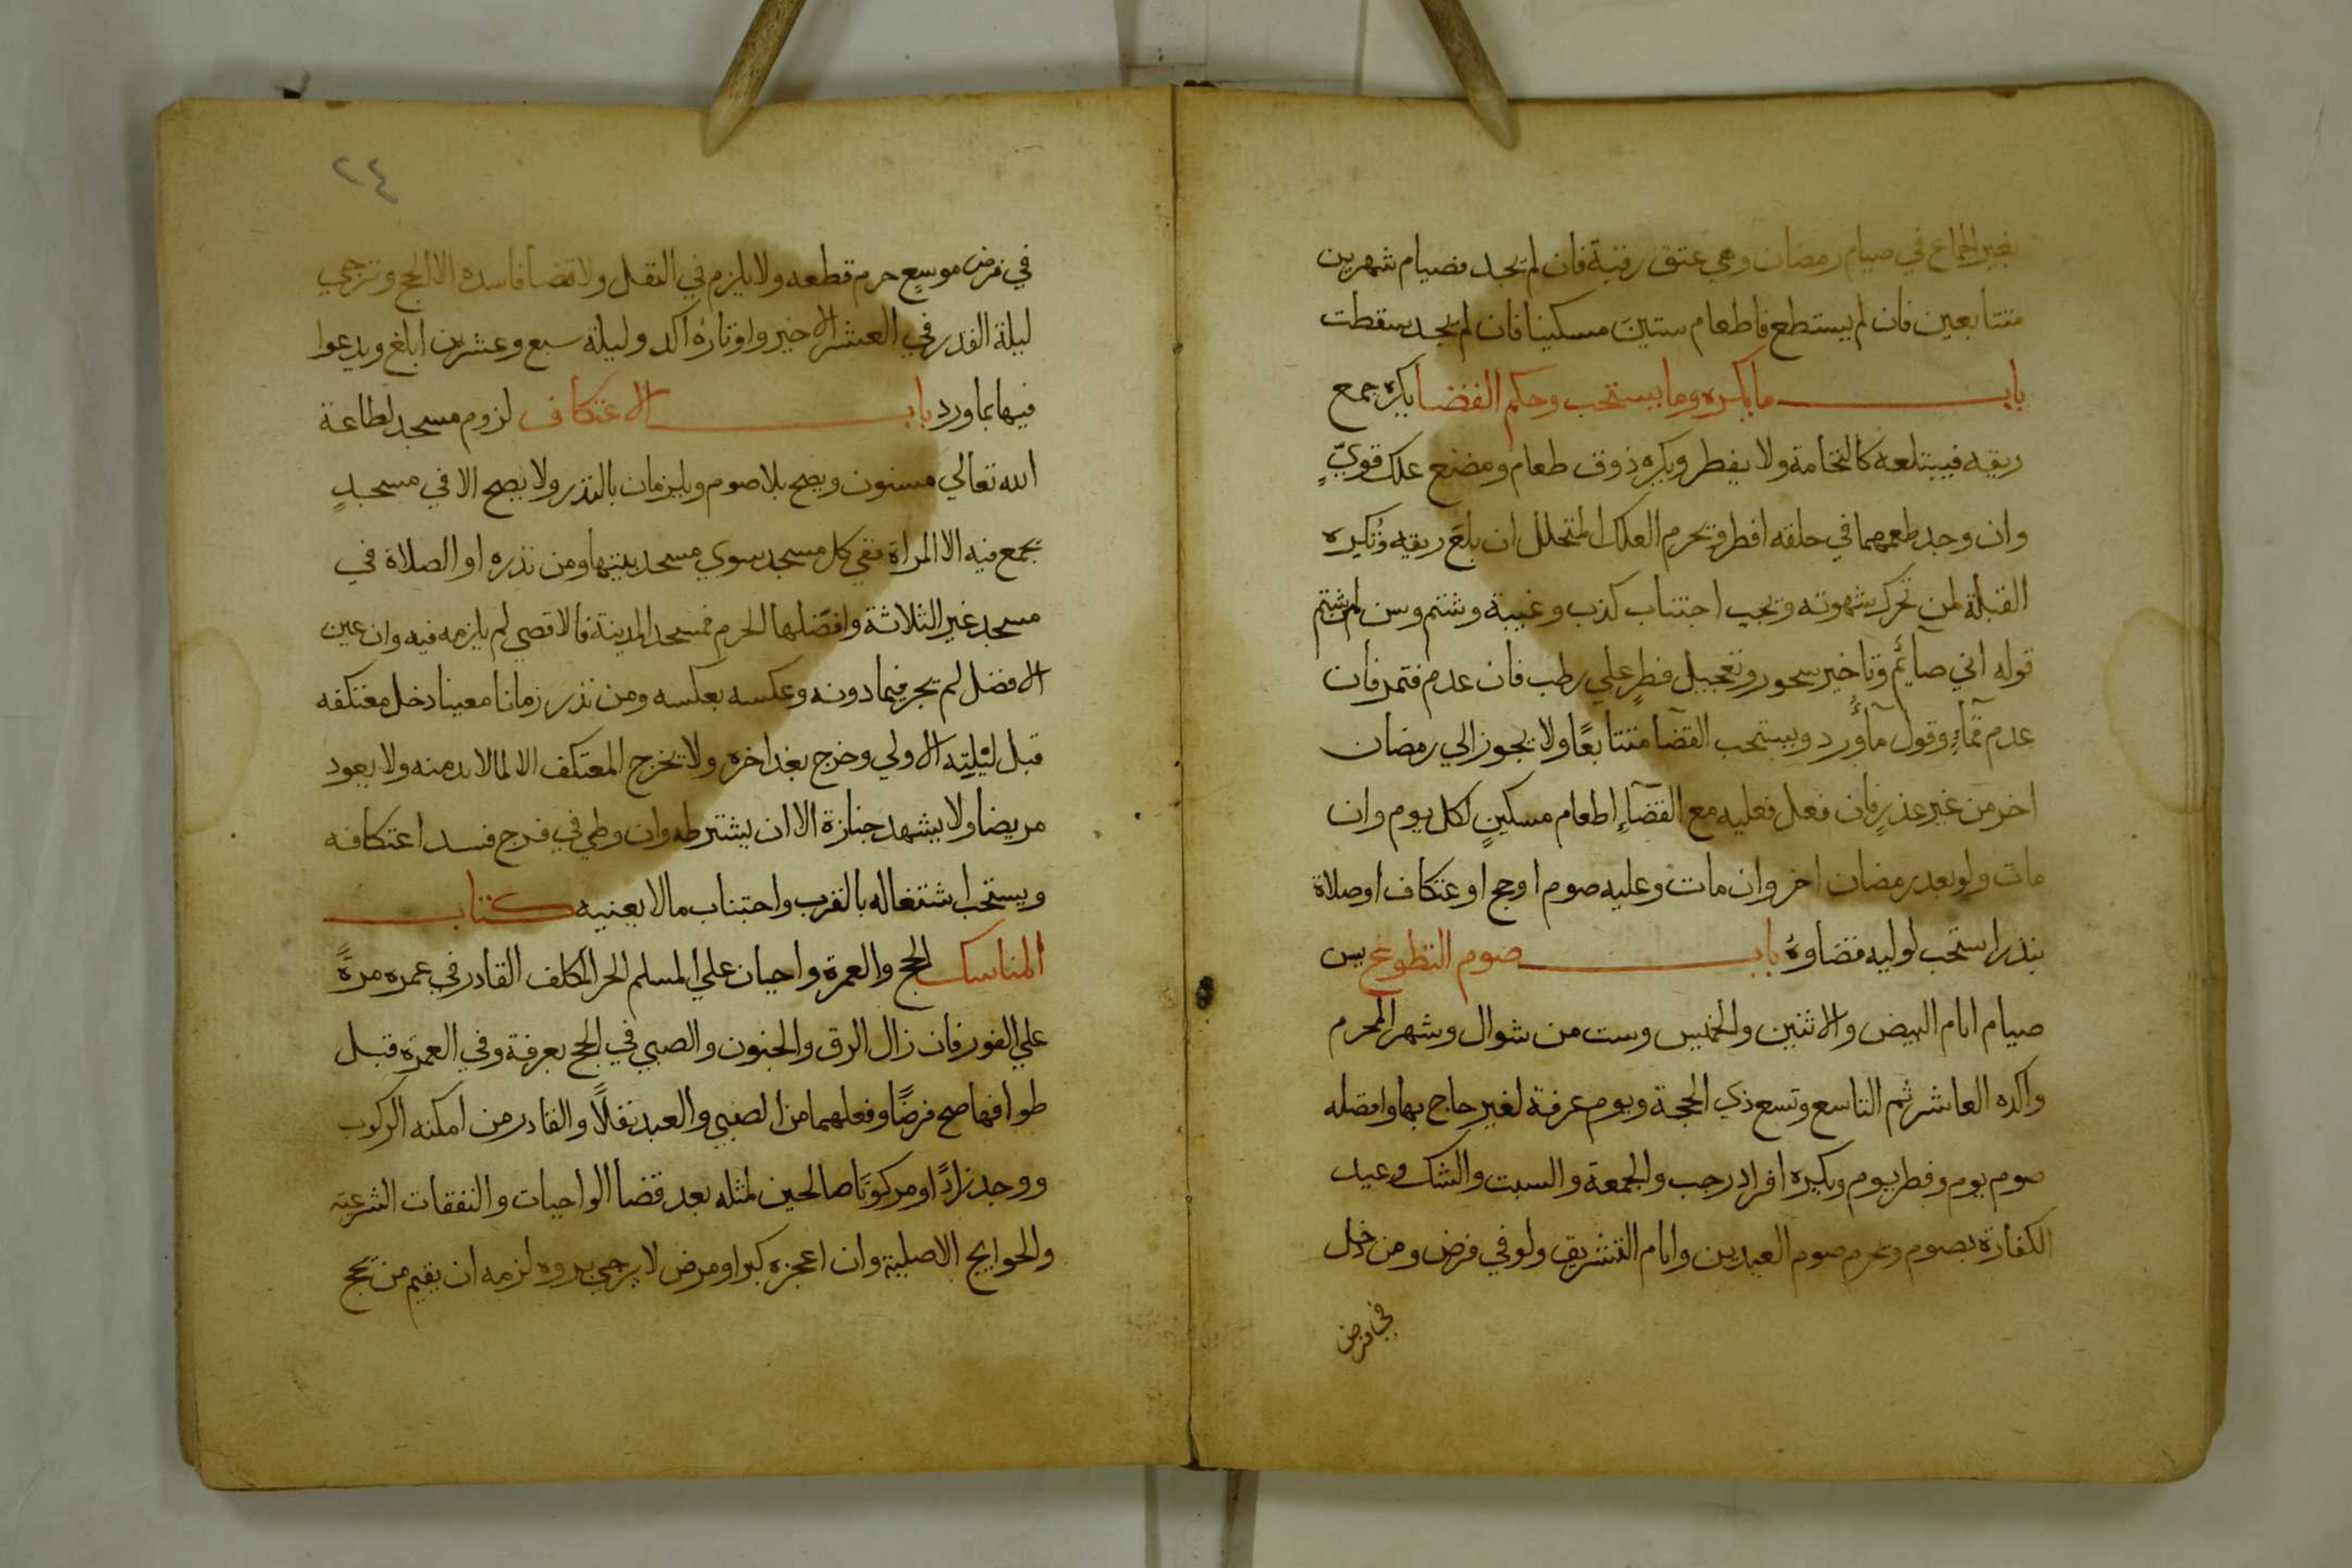 بغير الجماع في صيام رمضان وهي عتق رقبة فان لم يجد فصيام شهرين
متتابعين فان لم يستطع فاطعام ستين مسكينا فان لم يجد سقطت
باب ما يكره وما يستحب وحكم القضا يكره جمع
ريقه فيبتلعه كالنخامة ولا يفطر ويكره ذوق طعام ومضغ علك قويٍّ
وان وجد طعمهما في حلقه افطر ويحرم العلك المتحلل ان بلع ريقه وتكره
القبلة لمن تحرك شهوته ويجب اجتناب كذب وغيبة وشتم وسن لمن شتم
قوله اني صائم وتاخير سحور وتعجيل فطر علي رطب فان عدم فتمر فان
عدم فمآءٍ وقول مآ ورد ويستحب القضآ متتابعًا ولا يجوز الي رمضان
اخر من غير عذرٍ فان فعل فعليه مع القضآءِ اطعام مسكينٍ لكل يوم وان
مات ولو بعد رمضان اخر وان مات وعليه صوم او حج او عتكاف او صلاة
نذر استحب لوليه قضاوهُ باب صوم التطوع يسن
صيام ايام البيض والاثنين والخميس وست من شوال وشهر المحرم
واكده العاشر ثم التاسع وتسع ذي الحجة ويوم عرفة لغير حاج بها وافضله
صوم يوم وفطر يوم ويكره افراد رجب والجمعة والسبت والشك وعيد
الكفارة بصوم ويحرم صوم العيدين وايام التشريق ولو في فرض ومن دخل
في فرض
٢٤
في فرض موسعٍ حرم قطعه ولا يلزم في النفل ولا قضا فاسده الا الحج وترجي
ليلة القدر في العشر الاخير واوتاره اكد وليلة سبع وعشرين ابلغ ويدعوا
فيها بما ورد باب الاعتكاف لزوم مسجد لطاعة
الله تعالي مسنون ويصح بلا صوم ويلزمان بالنذر ولا يصح الا في مسجدٍ
يجمع فيه الا المراة ففي كل مسجد سوي مسجد بيتها ومن نذره او الصلاة في
مسجد غير الثلاثة وافضلها الحرم فمسجد المدينة فالاقصي لم يلزمه فيه وان عين
الافضل لم يجز فيما دونه وعكسه بعكسه ومن نذر زمانا معينا دخل معتكفه
قبل ليلته الاولي وخرج بعد اخره ولا يخرج المعتكف الا لما لا بد منه ولا يعود
مريضا ولا يشهد جنازة الا ان يشترطه وان وطي في فرج فسد اعتكافه
ويستحب اشتغاله بالقرب واجتناب مالا يعنيه كتاب
المناسك الحج والعمرة واجبان علي المسلم الحر المكلف القادر في عمره مرةً
علي الفور فان زال الرق والجنون والصبي في الحج بعرفة وفي العمرة قبل
طوافها صح فرضًا وفعلهما من الصبي والعبد نفلًا والقادر من امكنه الركوب
ووجد زادًا ومركوبًا صالحين لمثله بعد قضا الواجبات والنفقات الشرعية
والحوايج الاصلية وان اعجزه كبر او مرض لا يرجي بروه لزمه ان يقيم من يحج